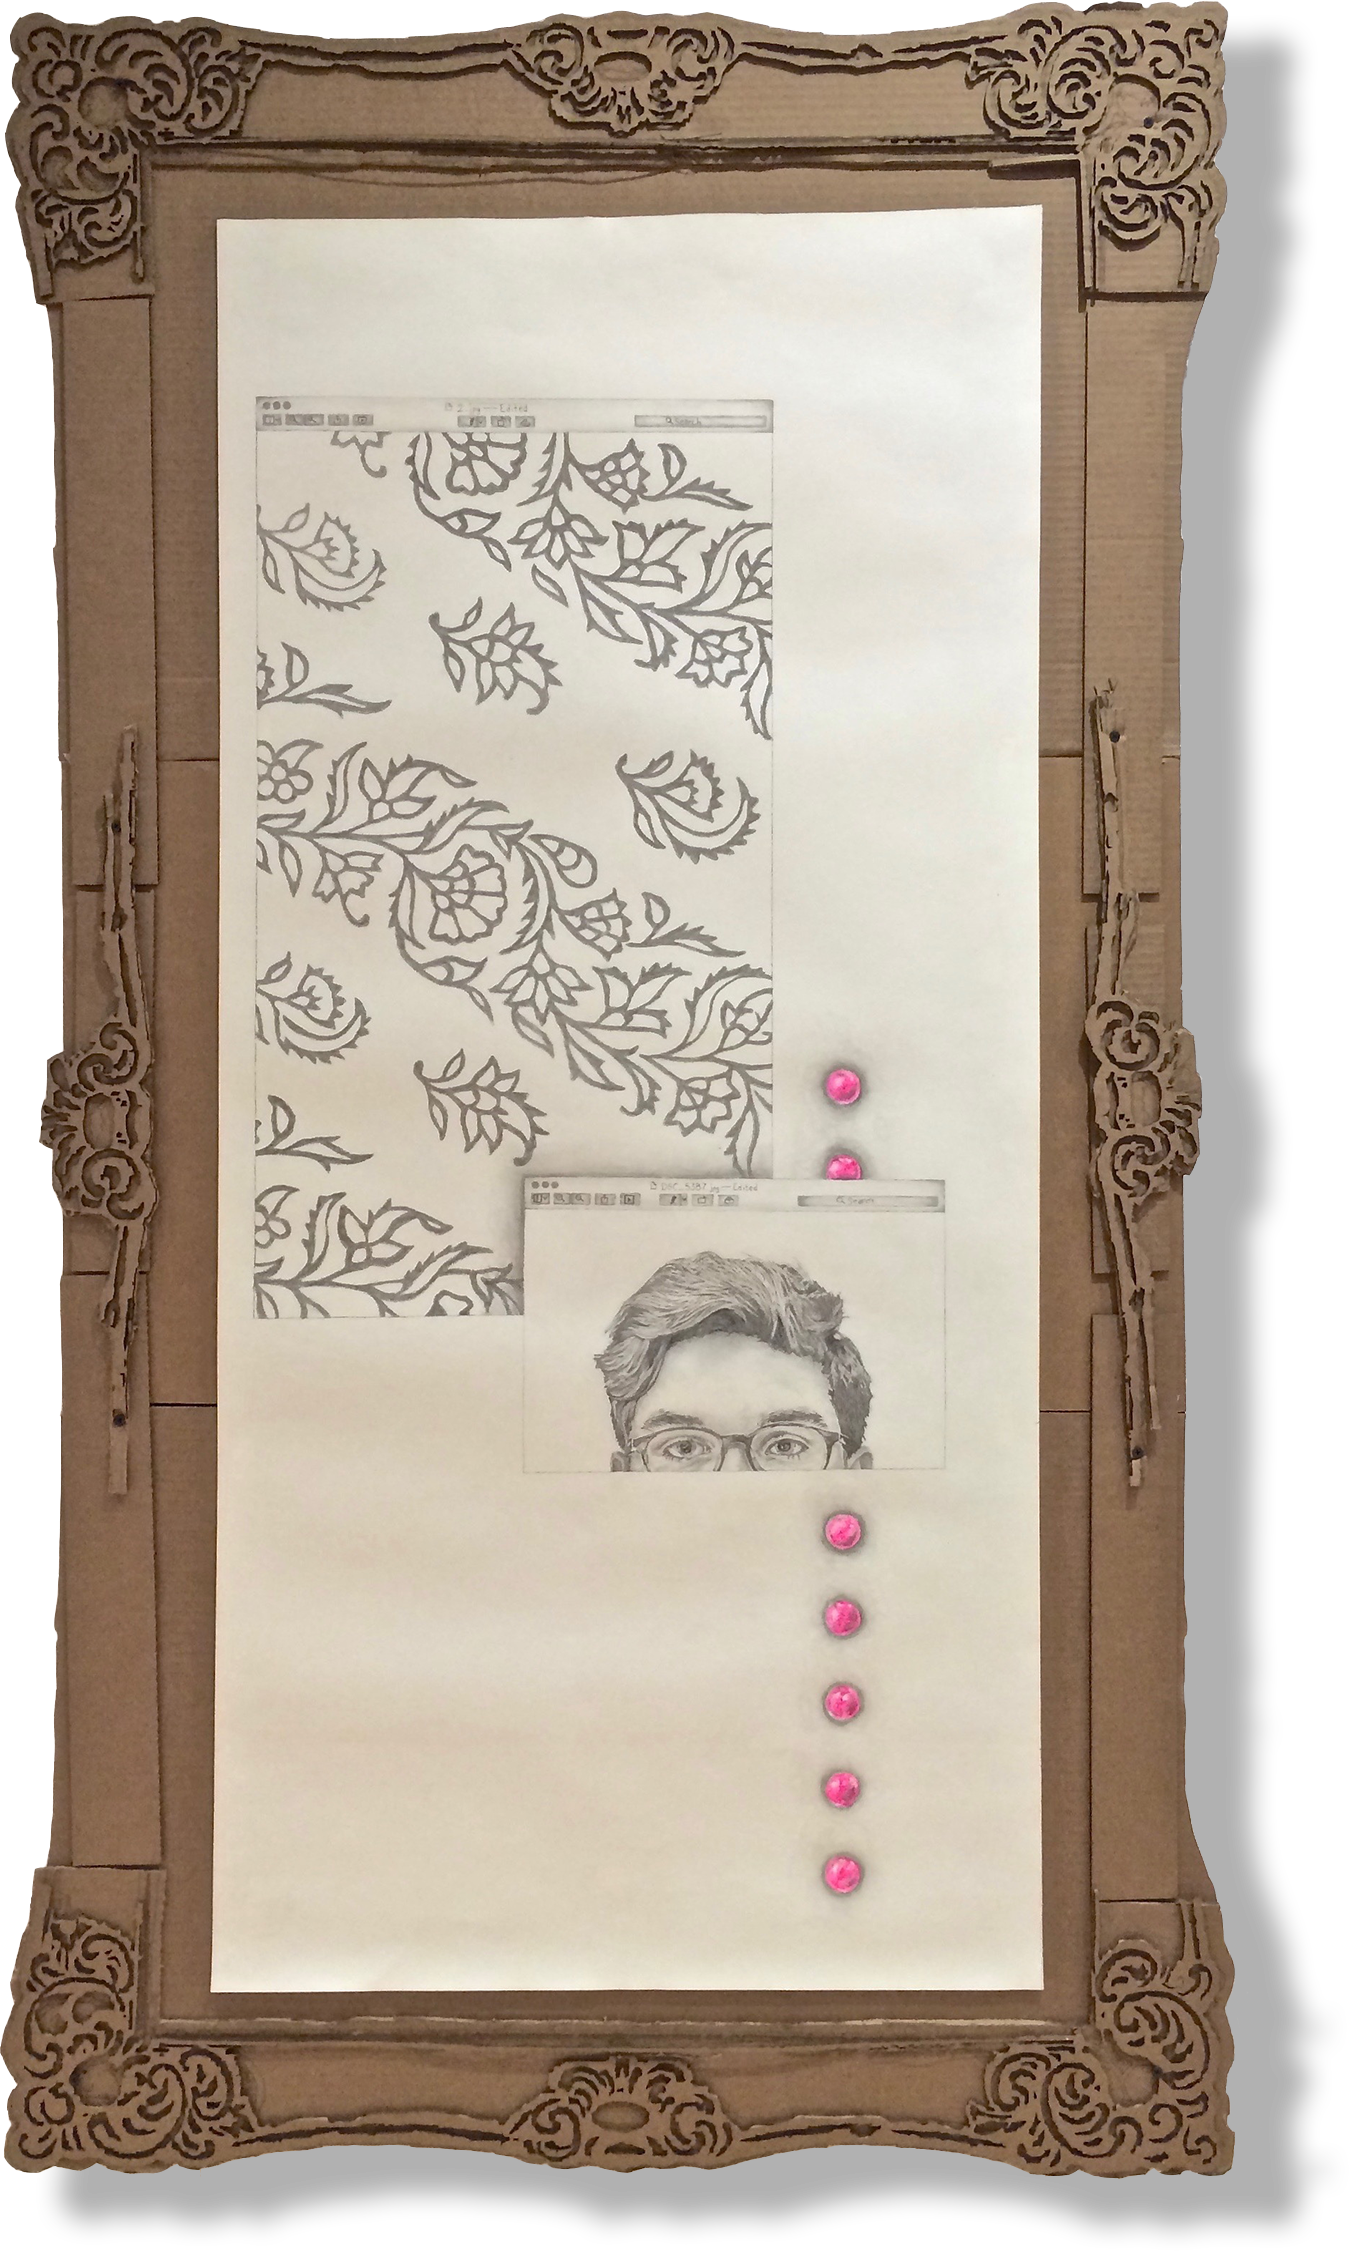 2.jpg — Edited
Search
DSC_5387.jpg — Edited
Search